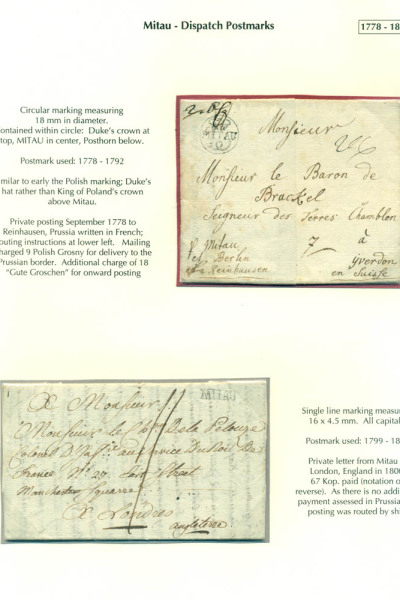 Mitau - Dispatch Postmarks
1778 - 18
Circular marking measuring
18 mm in diameter.
ontained within circle: Duke's crown at
top, MITAU in center, Posthorn below.
Postmark used: 1778 - 1792
milar to early the Polish marking; Duke's
hat rather than King of Poland's crown
above Mitau.
Private posting September 1778 to
Reinhausen, Prussia written in French;
outing instructions at lower left. Mailing
harged 9 Polish Grosny for delivery to the
Prussian border. Additional charge of 18
"Gute Groschen" for onward posting
MITAU
Monsieur
Monsieur le Baron de
Brackel
Seigneur des Terres Chamblon
à
Yverdon
en Suisse
p. Mitau
et Berlin
Reinhausen
A Monsieur
Monsieur le
France No. 27.
Manchester Square
A Londres
angleterre
Single line marking measu
16 x 4.5 mm. All capital
Postmark used: 1799 - 18
Private letter from Mitau
London, England in 180
67 Kop. paid (notation o
reverse). As there is no addi
payment assessed in Prussia
posting was routed by shi